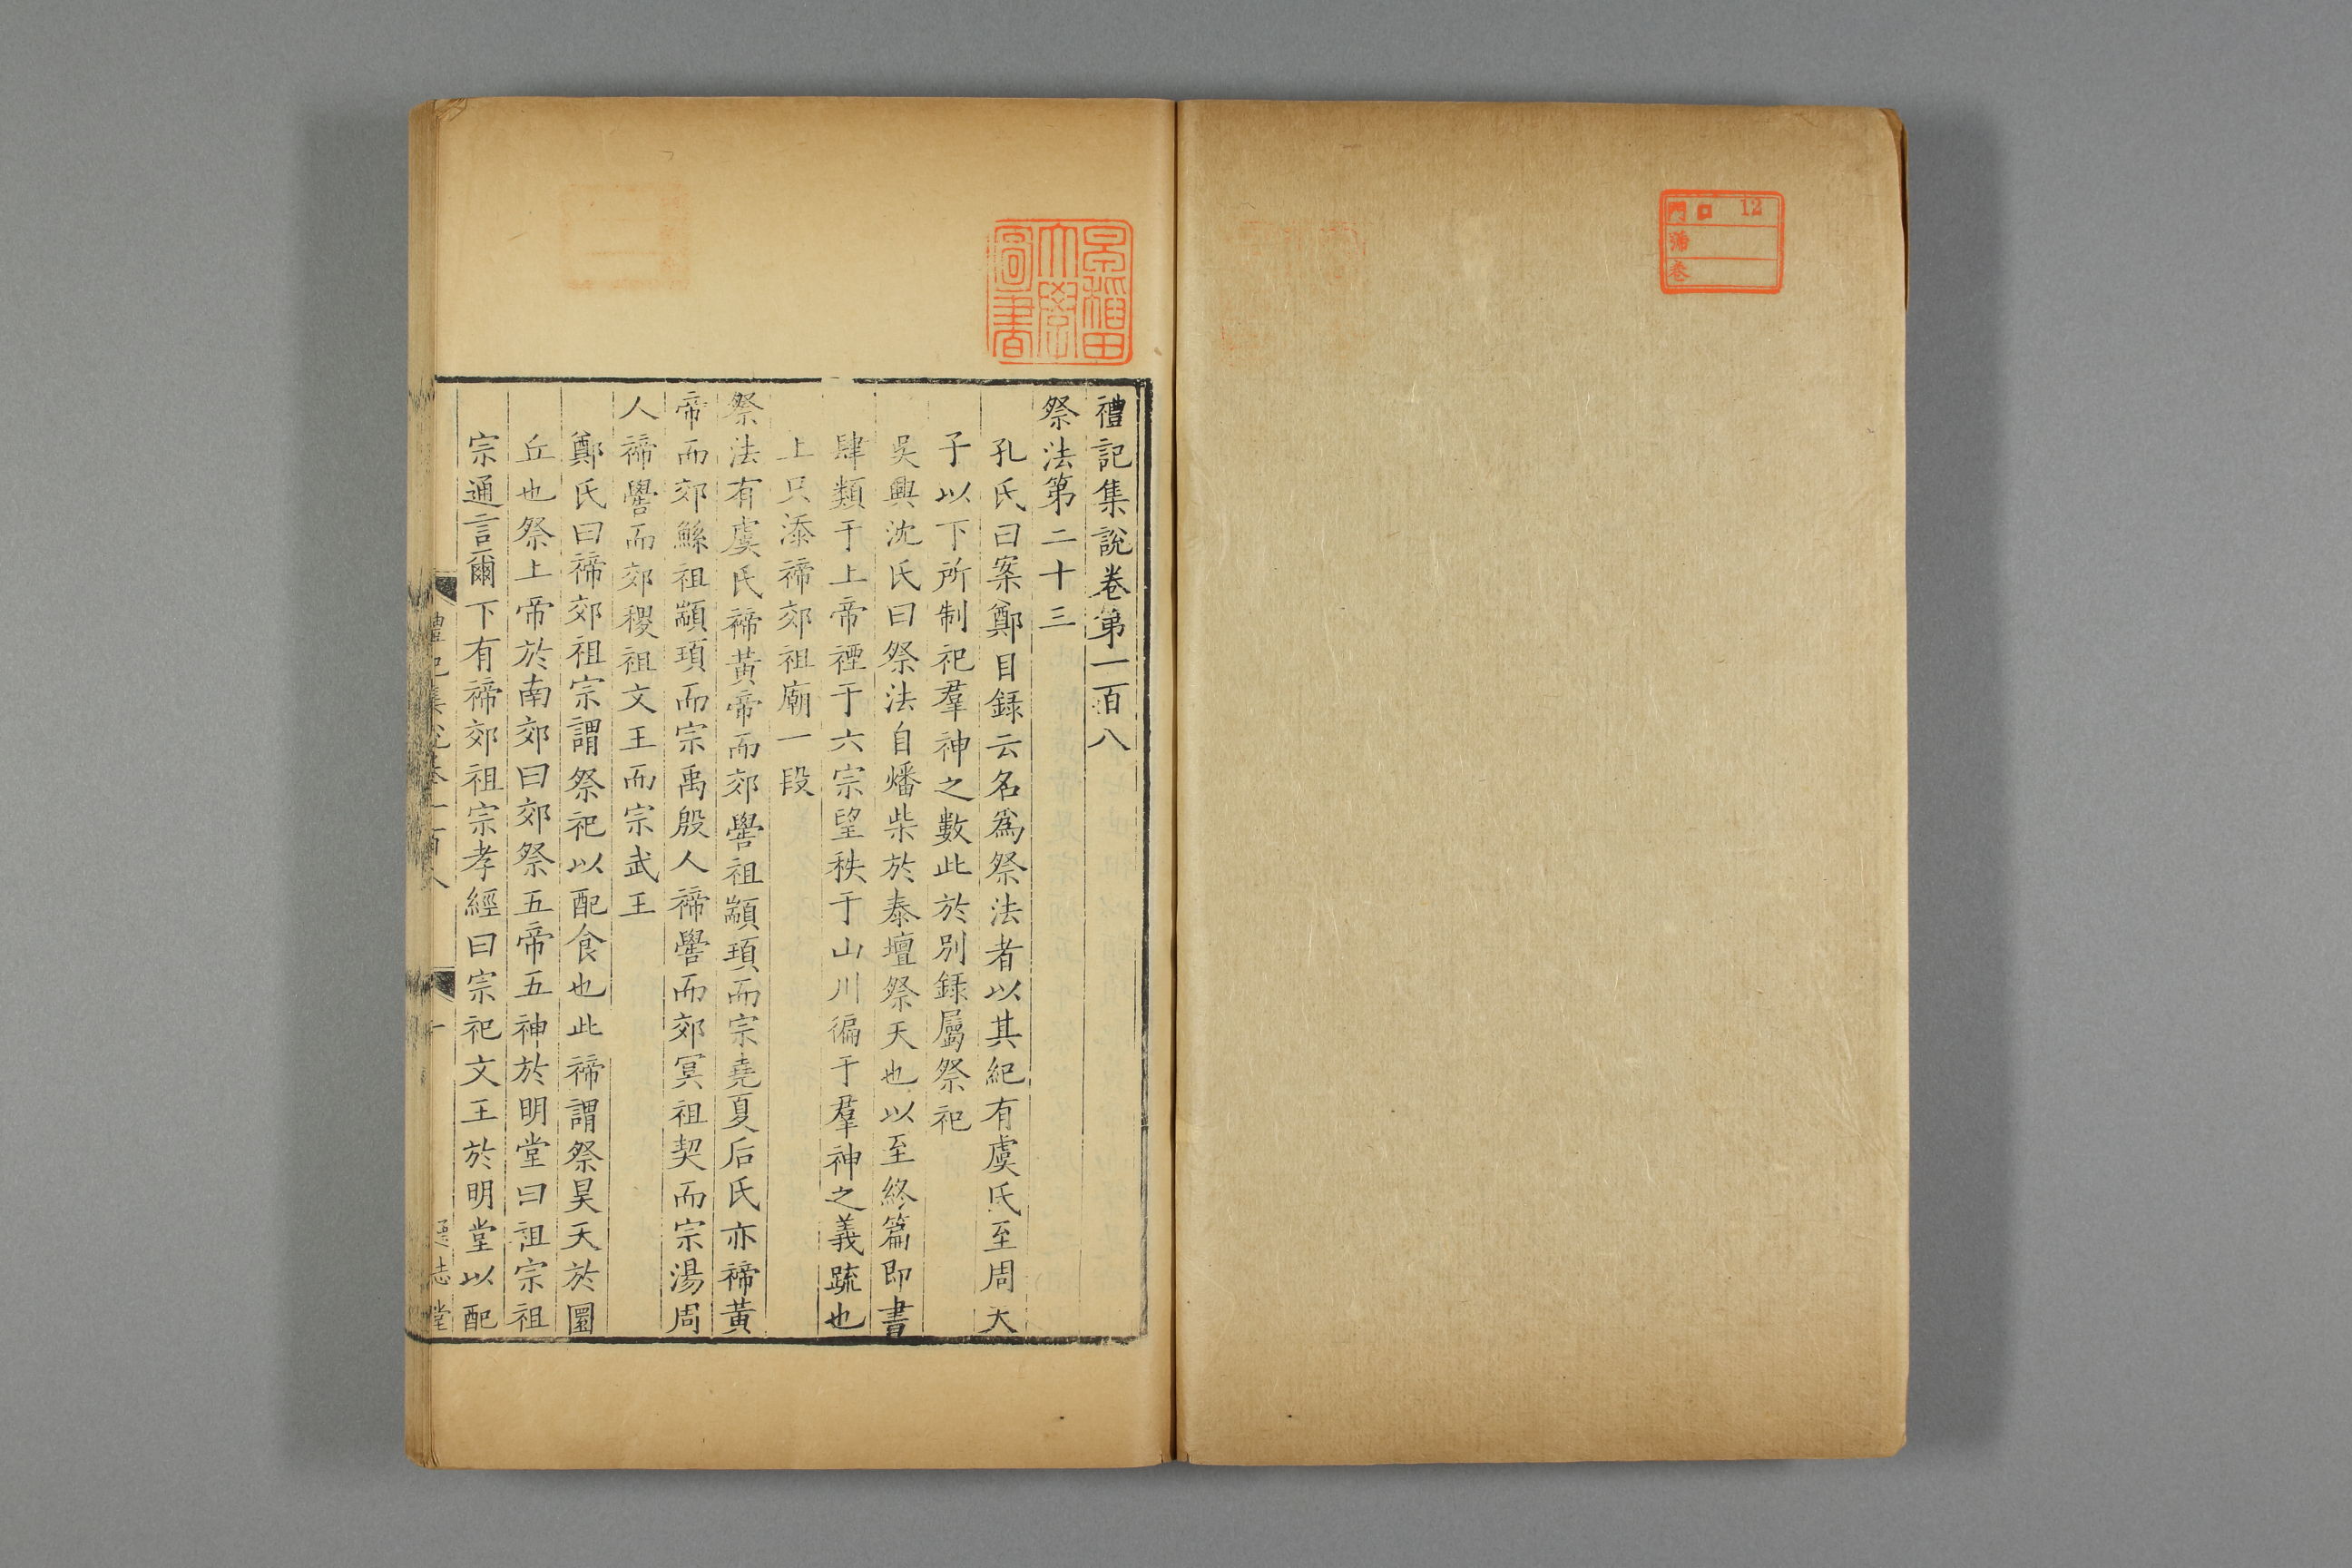 門 口 12
番
巻
早稲田大學圖書
禮記集說卷第一百八
祭法第二十三
孔氏曰案鄭目録云名爲祭法者以其紀有虞氏至周天
子以下所制祀羣神之數此於別録屬祭祀
吳興沈氏曰祭法自燔柴於泰壇祭天也以至終篇即書
肆類于上帝禋于六宗望秩于山川徧于羣神之義疏也
上只添禘郊祖廟一段
祭法有虞氏禘黃帝而郊嚳祖顓頊而宗堯夏后氏亦禘黃
帝而郊鯀祖顓頊而宗禹殷人禘嚳而郊冥祖契而宗湯周
人禘嚳而郊稷祖文王而宗武王
鄭氏曰禘郊祖宗謂祭祀以配食也此禘謂祭昊天於圜
丘也祭上帝於南郊曰郊祭五帝五神於明堂曰祖宗祖
宗通言爾下有禘郊祖宗孝經曰宗祀文王於明堂以配
禮記集說卷一百八 一 通志堂